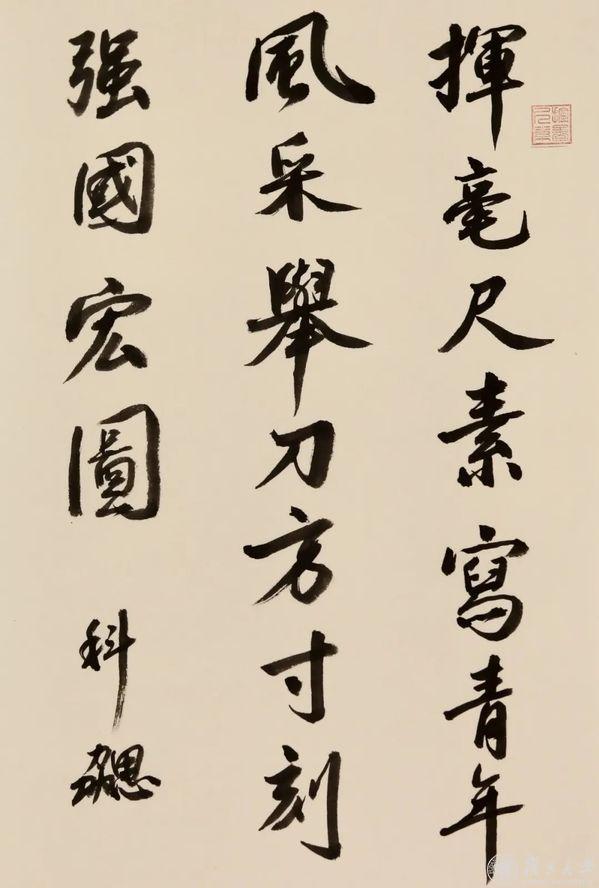 揮毫尺素寫青年
風采舉刀方寸刻
强國宏圖
科